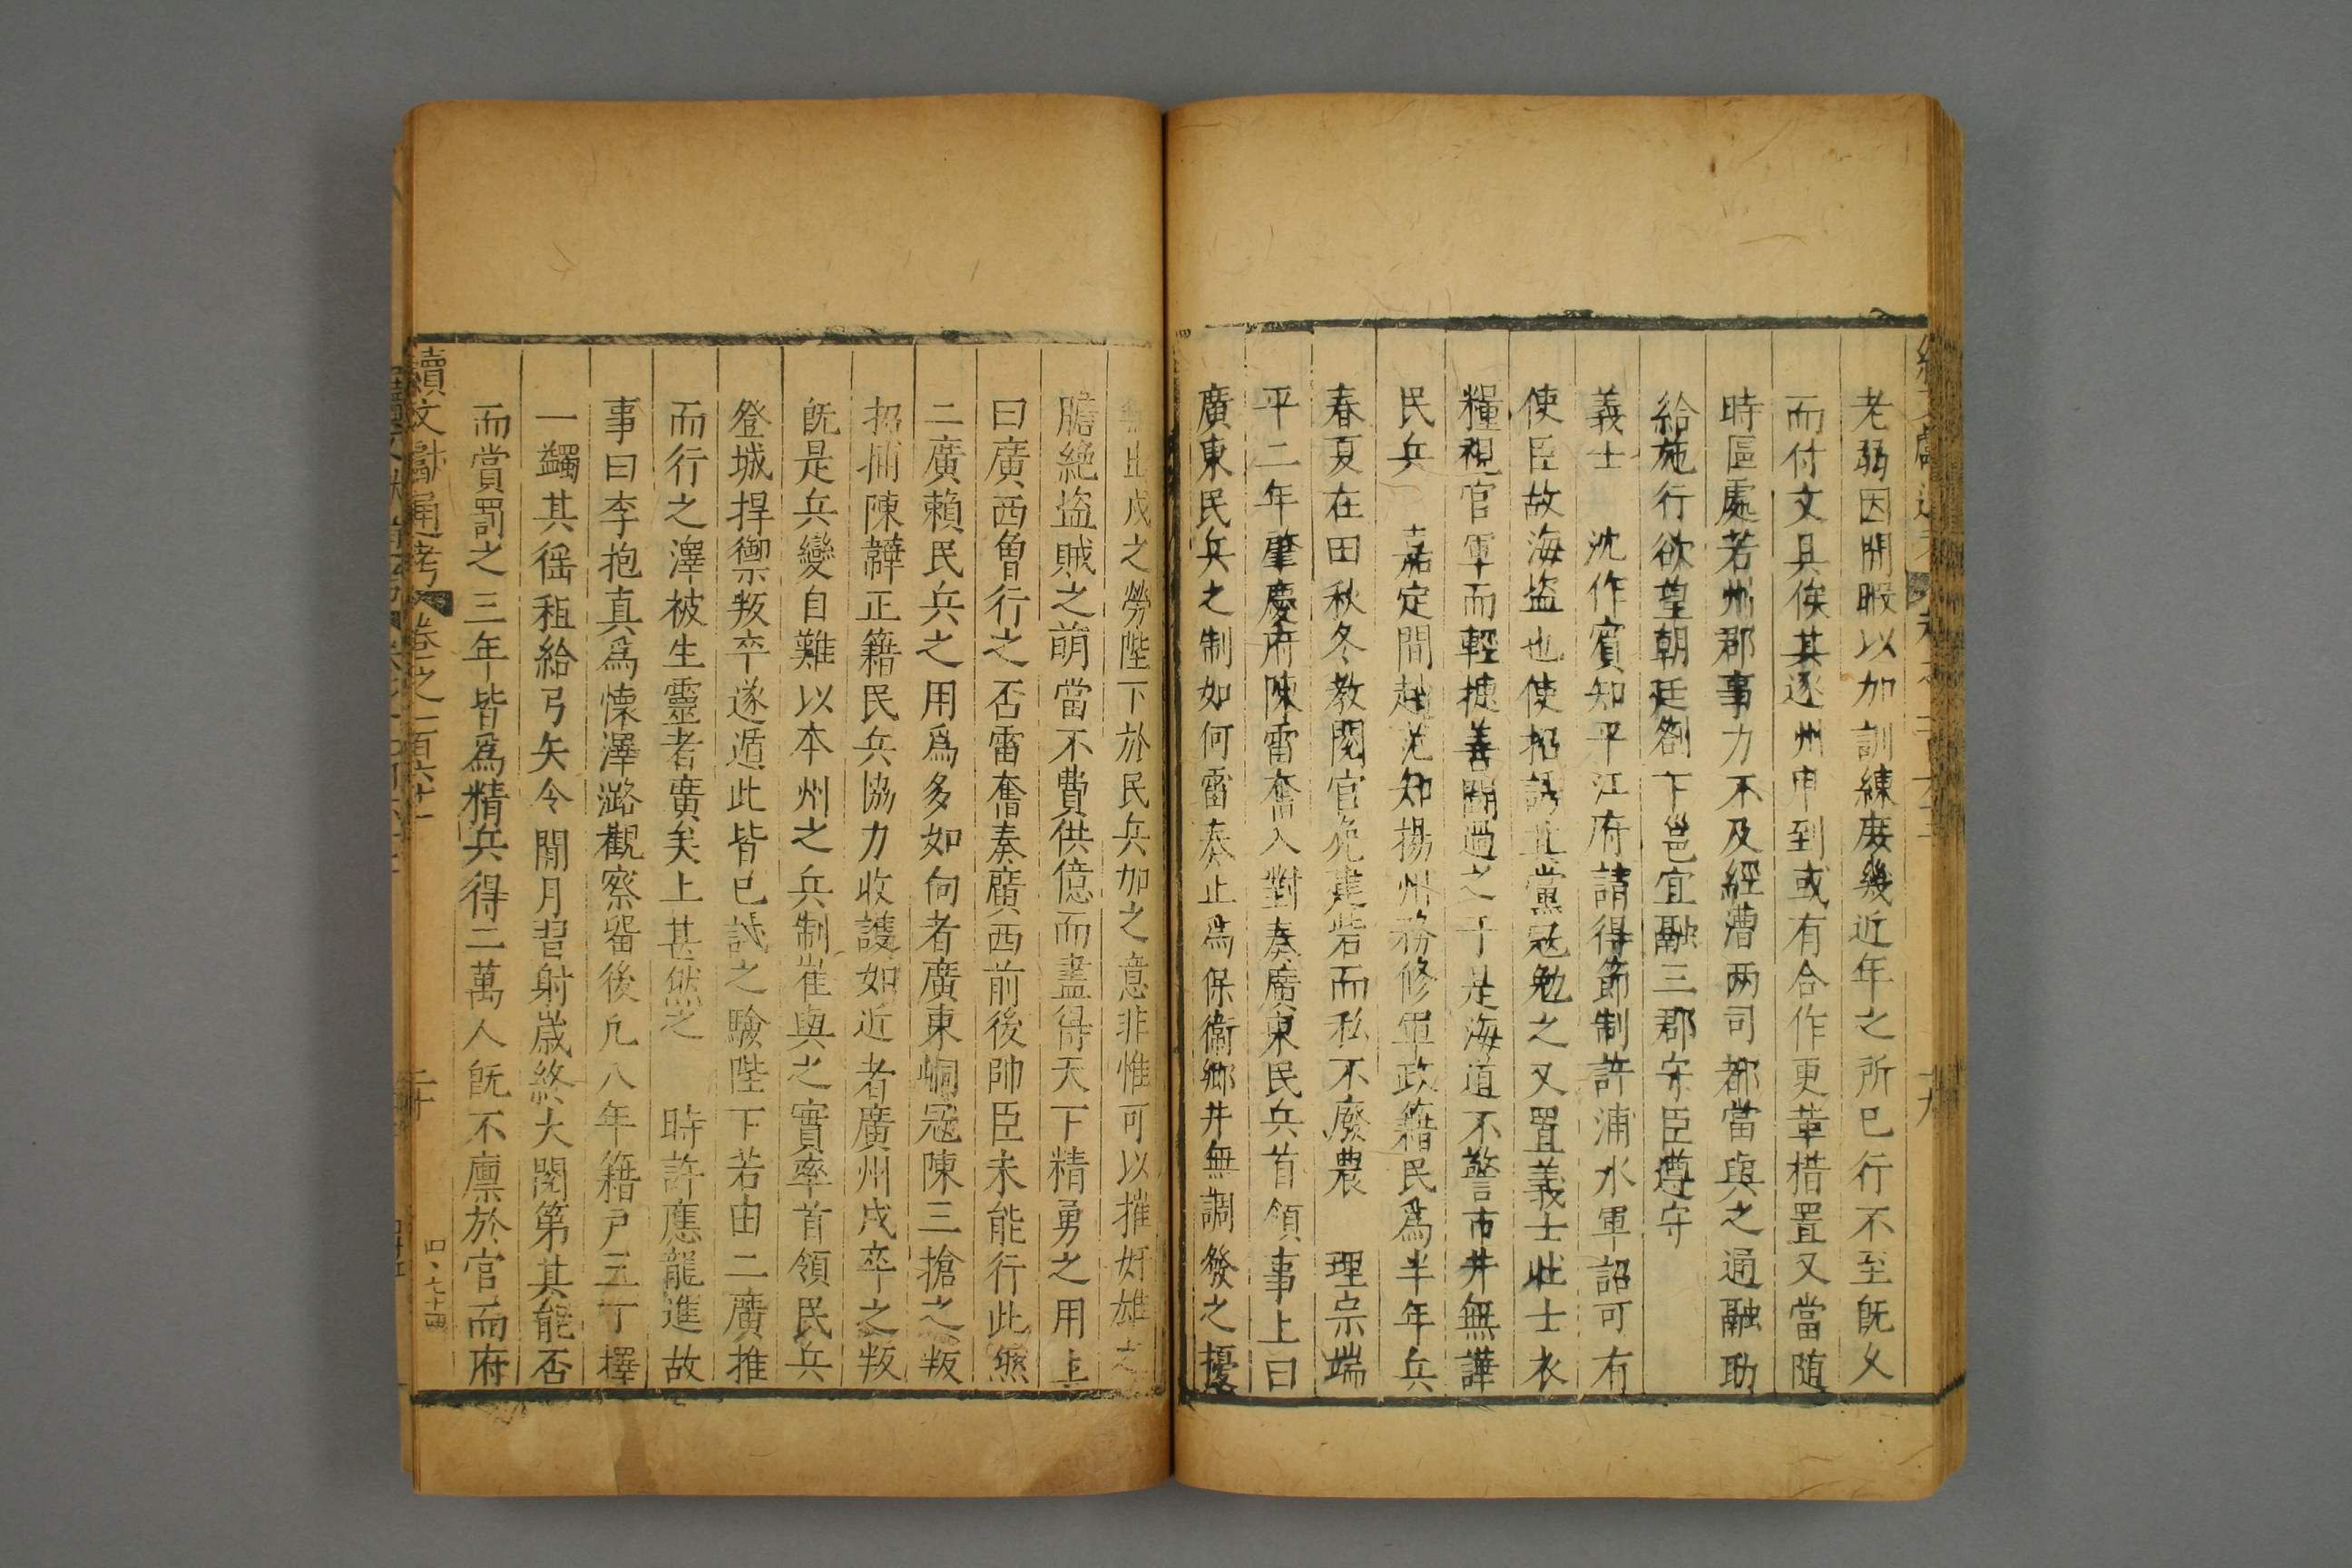 老弱因閒暇以加訓練庶幾近年之所已行不至旣久
而付文具俟其逐州申到或有合作更革措置又當随
時區處若州郡事力不及經漕两司都當與之通融助
給施行欲望朝廷劄下邕宜融三郡守臣遵守
義士 沈作賓知平江府請得節制許浦水軍詔可有
使臣故海盜也使招誘其黨冦勉之又置義士壯士衣
糧視官軍而輕捷善鬭過之于是海道不警市井無譁
民兵 嘉定間趙范知揚州務修軍政籍民爲半年兵
春夏在田秋冬教閱官免建砦而私不廢農 理宗端
平二年肇慶府陳雷奮入對奏廣東民兵首領事上曰
廣東民兵之制如何雷奏止爲保衞鄉井無調發之擾
無出戍之勞陛下於民兵加之意非惟可以摧奸雄之
膽絶盜賊之萌當不費供億而盡得天下精勇之用上
曰廣西魯行之否雷奮奏廣西前後帥臣未能行此然
二廣賴民兵之用爲多如向者廣東峒冦陳三搶之叛
招捕陳韡正籍民兵協力收護如近者廣州戍卒之叛
旣是兵變自難以本州之兵制崔與之實率首領民兵
登城捍禦叛卒遂遁此皆已試之驗陛下若由二廣推
而行之澤被生靈者廣矣上甚然之 時許應龍進故
事曰李抱真爲懷澤潞觀察畱後凡八年籍戸三丁擇
一蠲其徭租給弓矢令閒月習射歲終大閱第其能否
而賞罰之三年皆爲精兵得二萬人旣不廪於官而府
續文獻通考 卷之一百六十一 二十 四、七十四